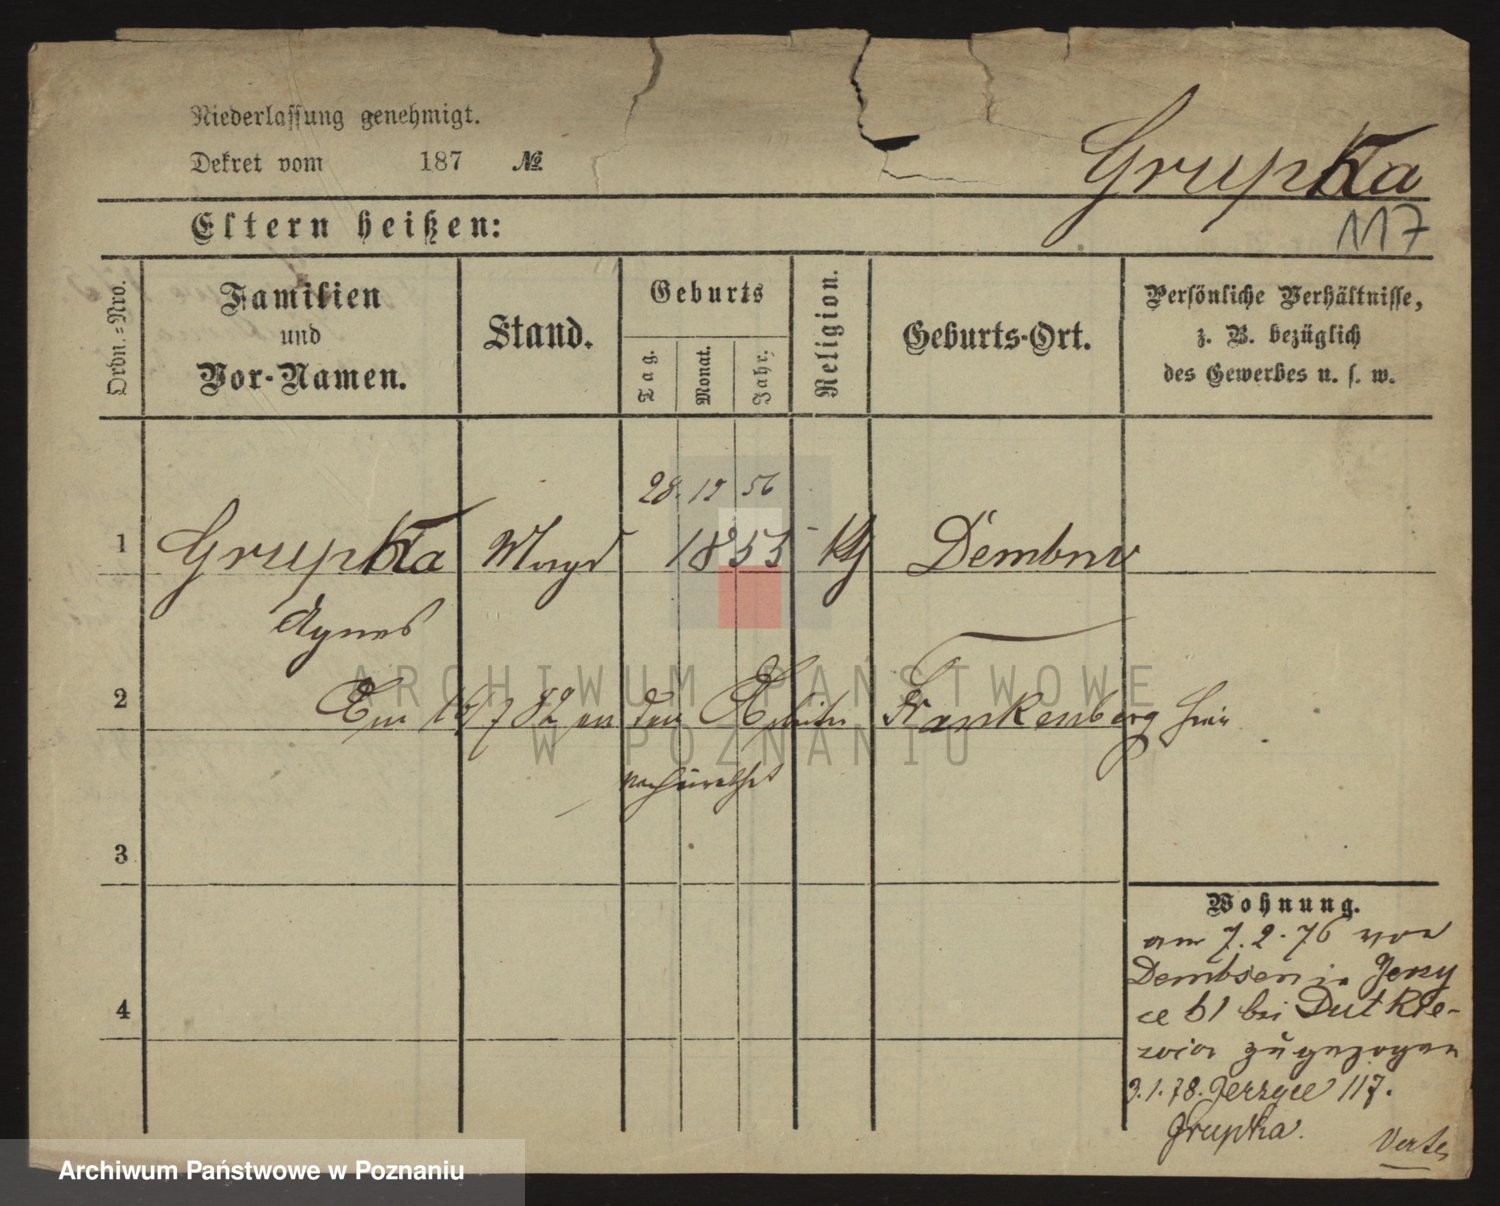 Niederlassung genehmigt.
Dekret vom 187 №
Grupka
117
Eltern heißen:
Ordn.=Nro.
Familien
und
Vor-Namen.
Stand.
Geburts
Tag.
Monat.
Jahr.
Religion.
Geburts-Ort.
Persönliche Verhältnisse,
z. B. bezüglich
des Gewerbes u. s. w.
28. 12 56
1 Grupka Magd 1855 Dembno
Agnes
2 Frankenberg hier
verheirathet
3
Wohnung.
am 7.2.76 von
Dembsen in Jerzy
ce 61 bei Dutkie-
wicz zugezogen
4
9.1.78. Jerzyce 117.
Grupka.
Verte
ARCHIWUM PAŃSTWOWE
W POZNANIU
Archiwum Państwowe w Poznaniu